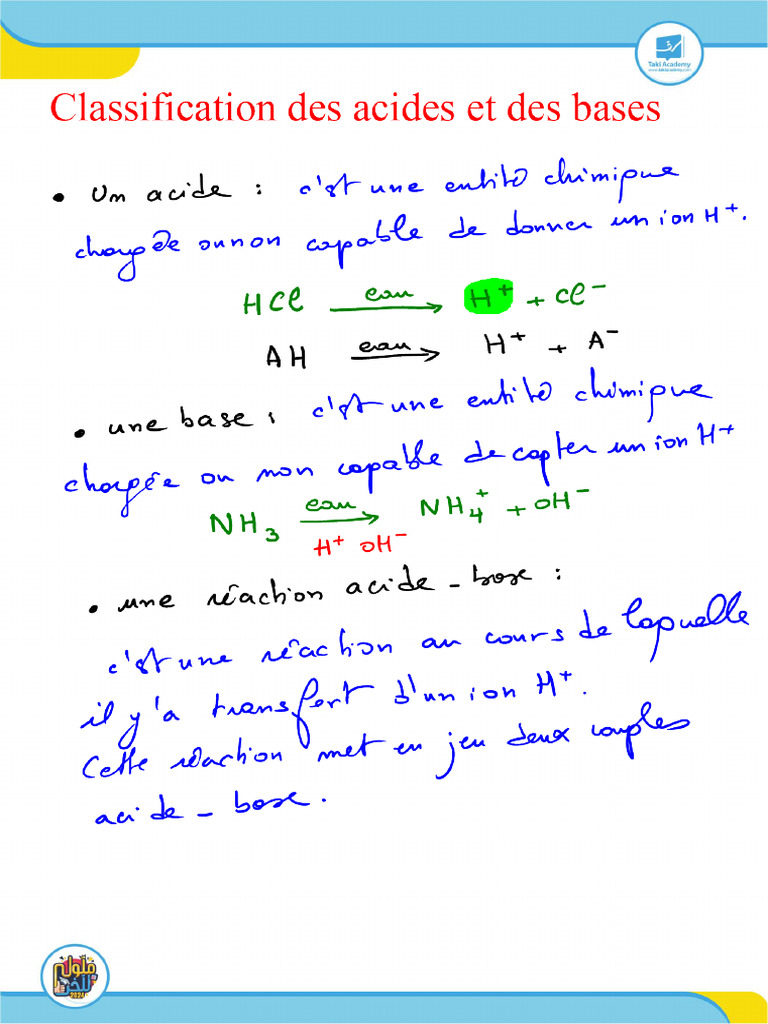 Takî Academy
www.takiacademy.com
Classification des acides et des bases
• Un acide : c'est une entité chimique
chargée ou non capable de donner un ion H⁺.
HCl —eau→ H⁺ + Cl⁻
AH —eau→ H⁺ + A⁻
• une base : c'est une entité chimique
chargée ou non capable de capter un ion H⁺
NH₃ —eau→ NH₄⁺ + OH⁻
H⁺ OH⁻
• une réaction acide - base :
c'est une réaction au cours de laquelle
il y'a transfert d'un ion H⁺.
Cette réaction met en jeu deux couples
acide - base.
2024